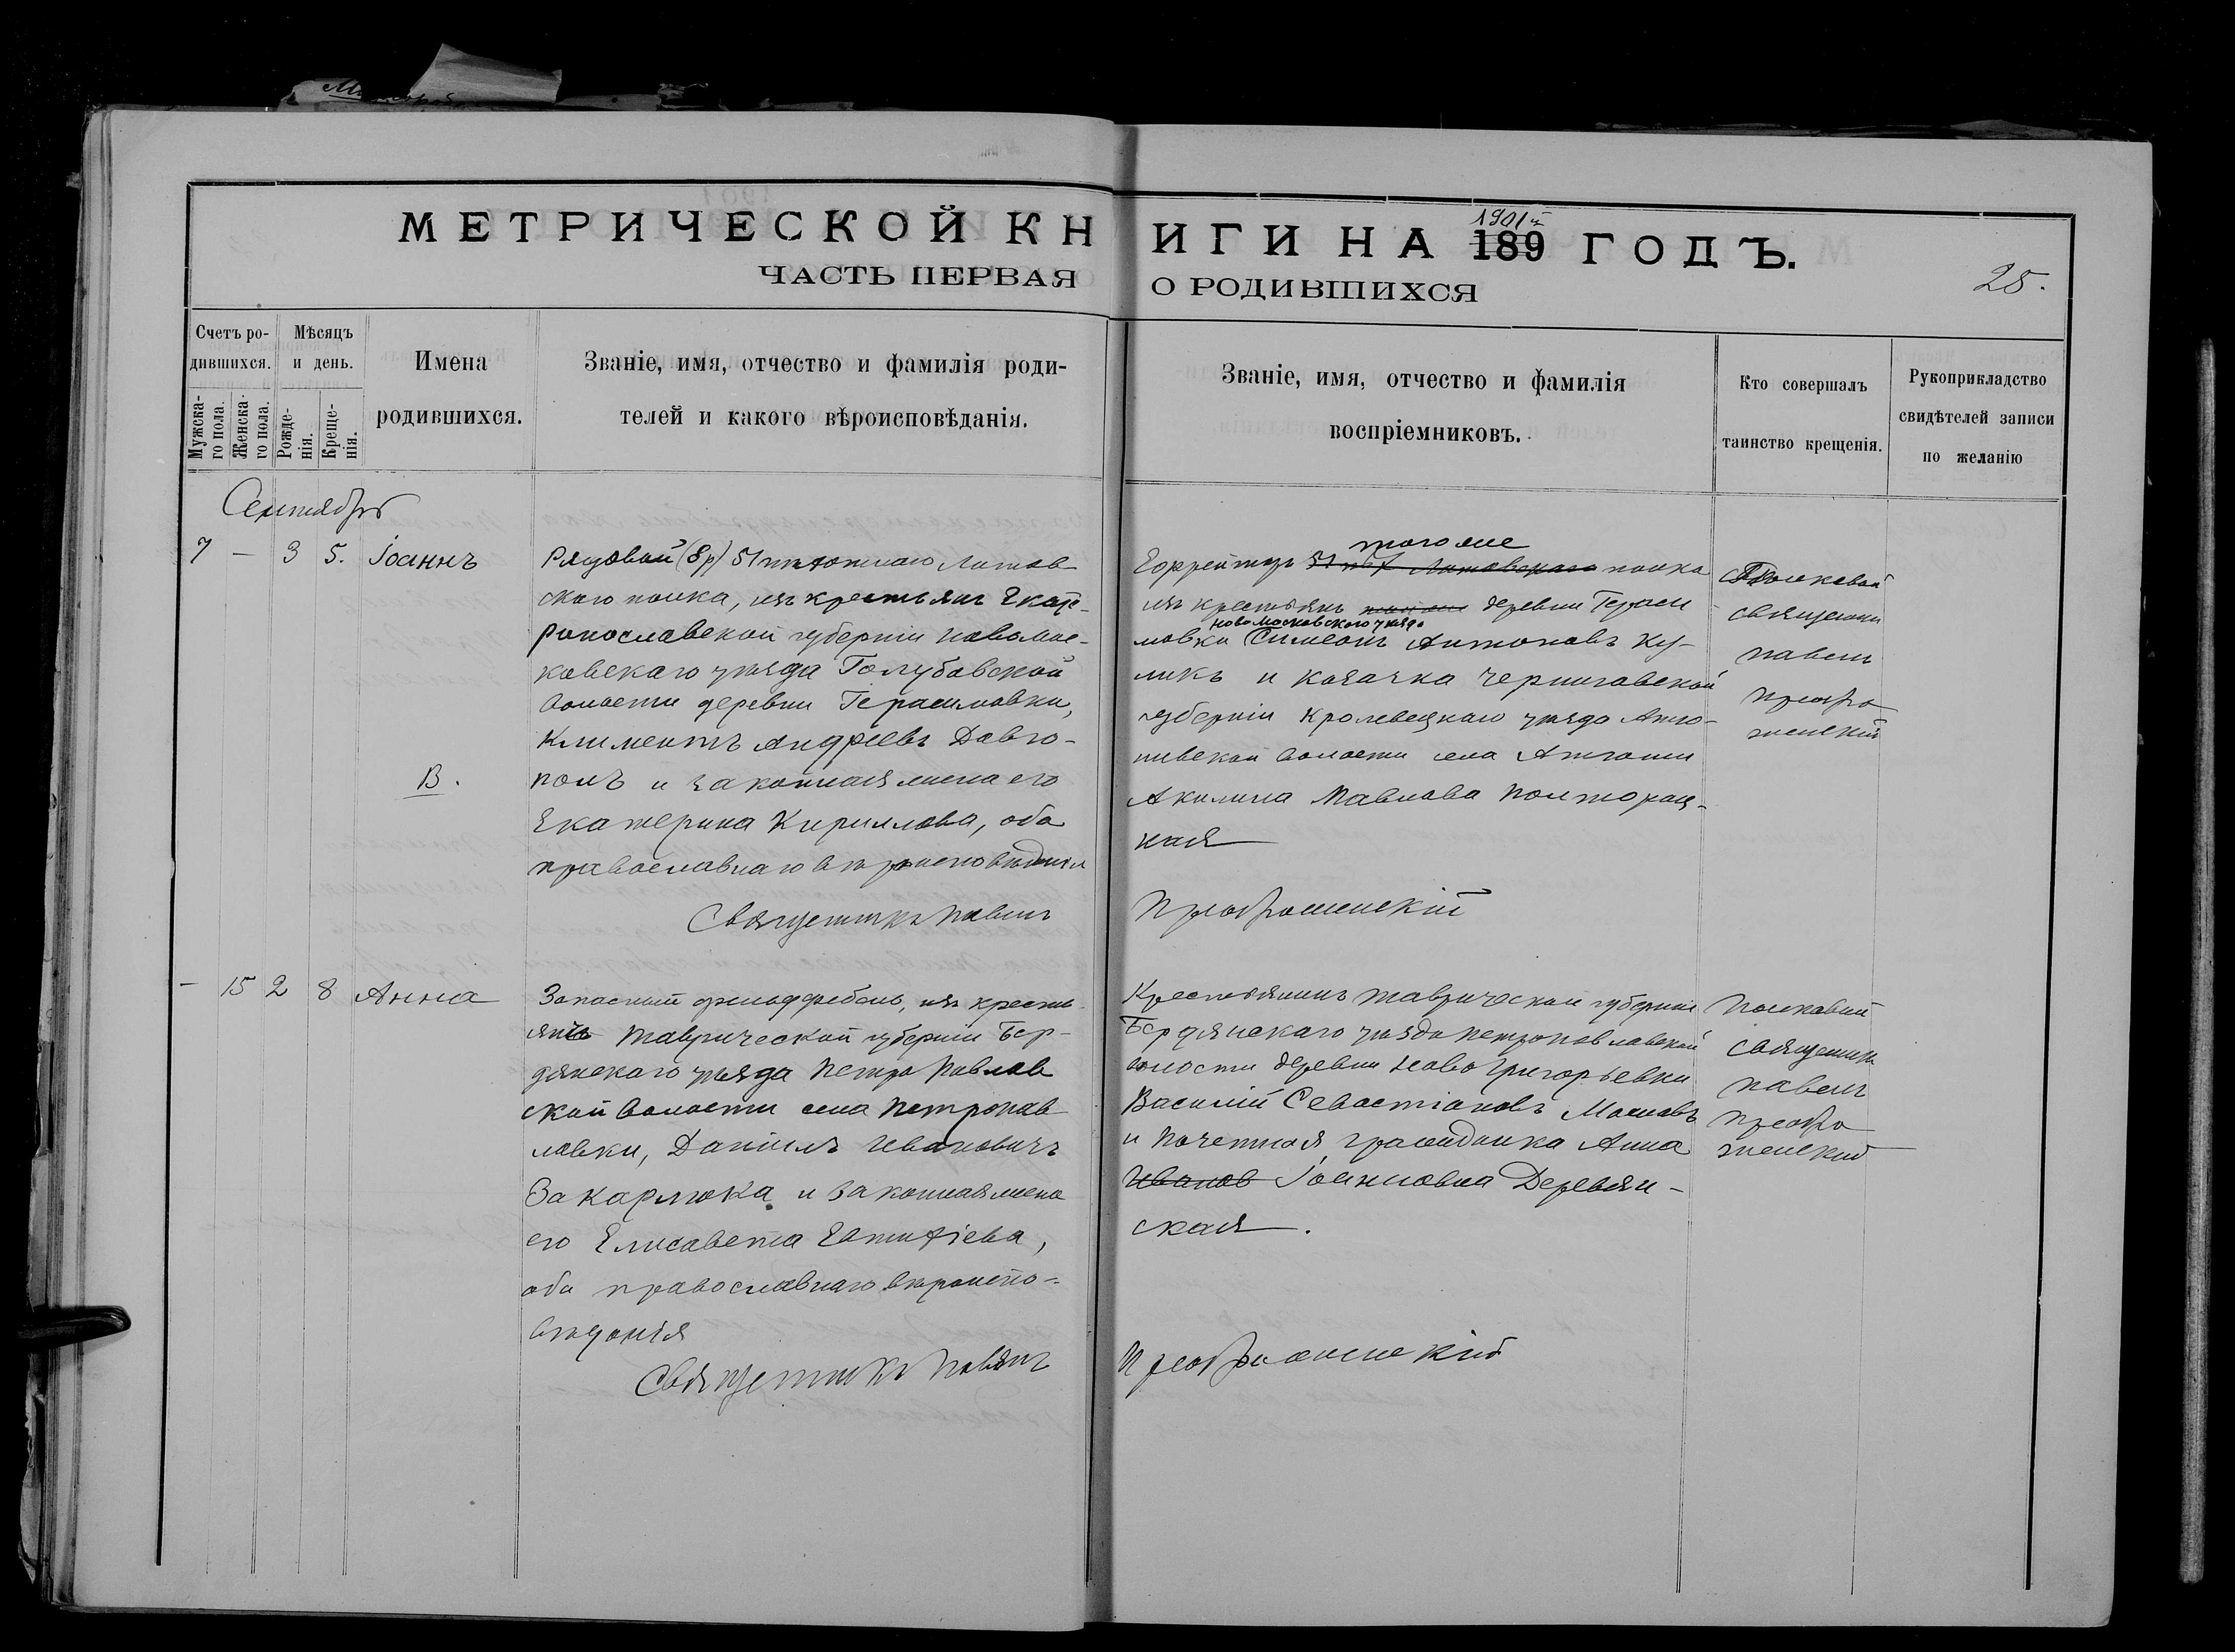 МЕТРИЧЕСКОЙ КНИГИ НА 189 ГОДЪ.
1901й
ЧАСТЬ ПЕРВАЯ О РОДИВШИХСЯ
25.
Счетъ ро-
дившихся.
Мужска-
го пола.
Женска-
го пола.
Мѣсяцъ
и день.
Рожде-
нія.
Креще-
нія.
Имена
родившихся.
Званіе, имя, отчество и фамилія роди-
телей и какого вѣроисповѣданія.
Званіе, имя, отчество и фамилія
воспріемниковъ.
Кто совершалъ
таинство крещенія.
Рукоприкладство
свидѣтелей записи
по желанію
Сентябрь
7 — 3 5. Іоаннъ
В.
Рядовой 51 Литов
скаго полка, изъ крестьянъ Екате-
ринославской губерніи Новомос-
ковскаго уѣзда Голубовской
волости деревни Герасимовки,
Климентъ Андреевъ Довго-
полъ и законная жена его
Екатерина Кириллова, оба
православнаго вѣроисповѣданія
Священникъ Павелъ
того же
Ефрейторъ 51 Литовскаго полка
изъ крестьянъ деревни Гераси
новомосковскаго уѣзда
мовки Симеонъ Антоновъ Ку-
ликъ и козачка Черниговской
губерніи Кролевецкаго уѣзда
волости села
Акилина Павлова Полторац-
кая
Преображенскій
Полковой
священникъ
Павелъ
Преобра
женскій
— 15 2 8 Анна
Запасный фельдфебель, изъ кресть
янъ Таврической губерніи Бер-
дянскаго уѣзда Петро Павлов
ской волости села Петропав
ловки, Даніилъ Ивановичъ
Закарлюка и законная жена
его Елисавета Евтихіева,
оба православнаго вѣроиспо-
вѣданія
Священникъ Павелъ
Крестьянинъ Таврической губерніи
Бердянскаго уѣзда Петропавловской
волости деревни Ново Григорьевки
Василій Севастіановъ
и почетная гражданка Анна
Иванов Іоанновна Деревян-
ская.
Преображенскій
Полковой
священникъ
Павелъ
Преобра
женскій